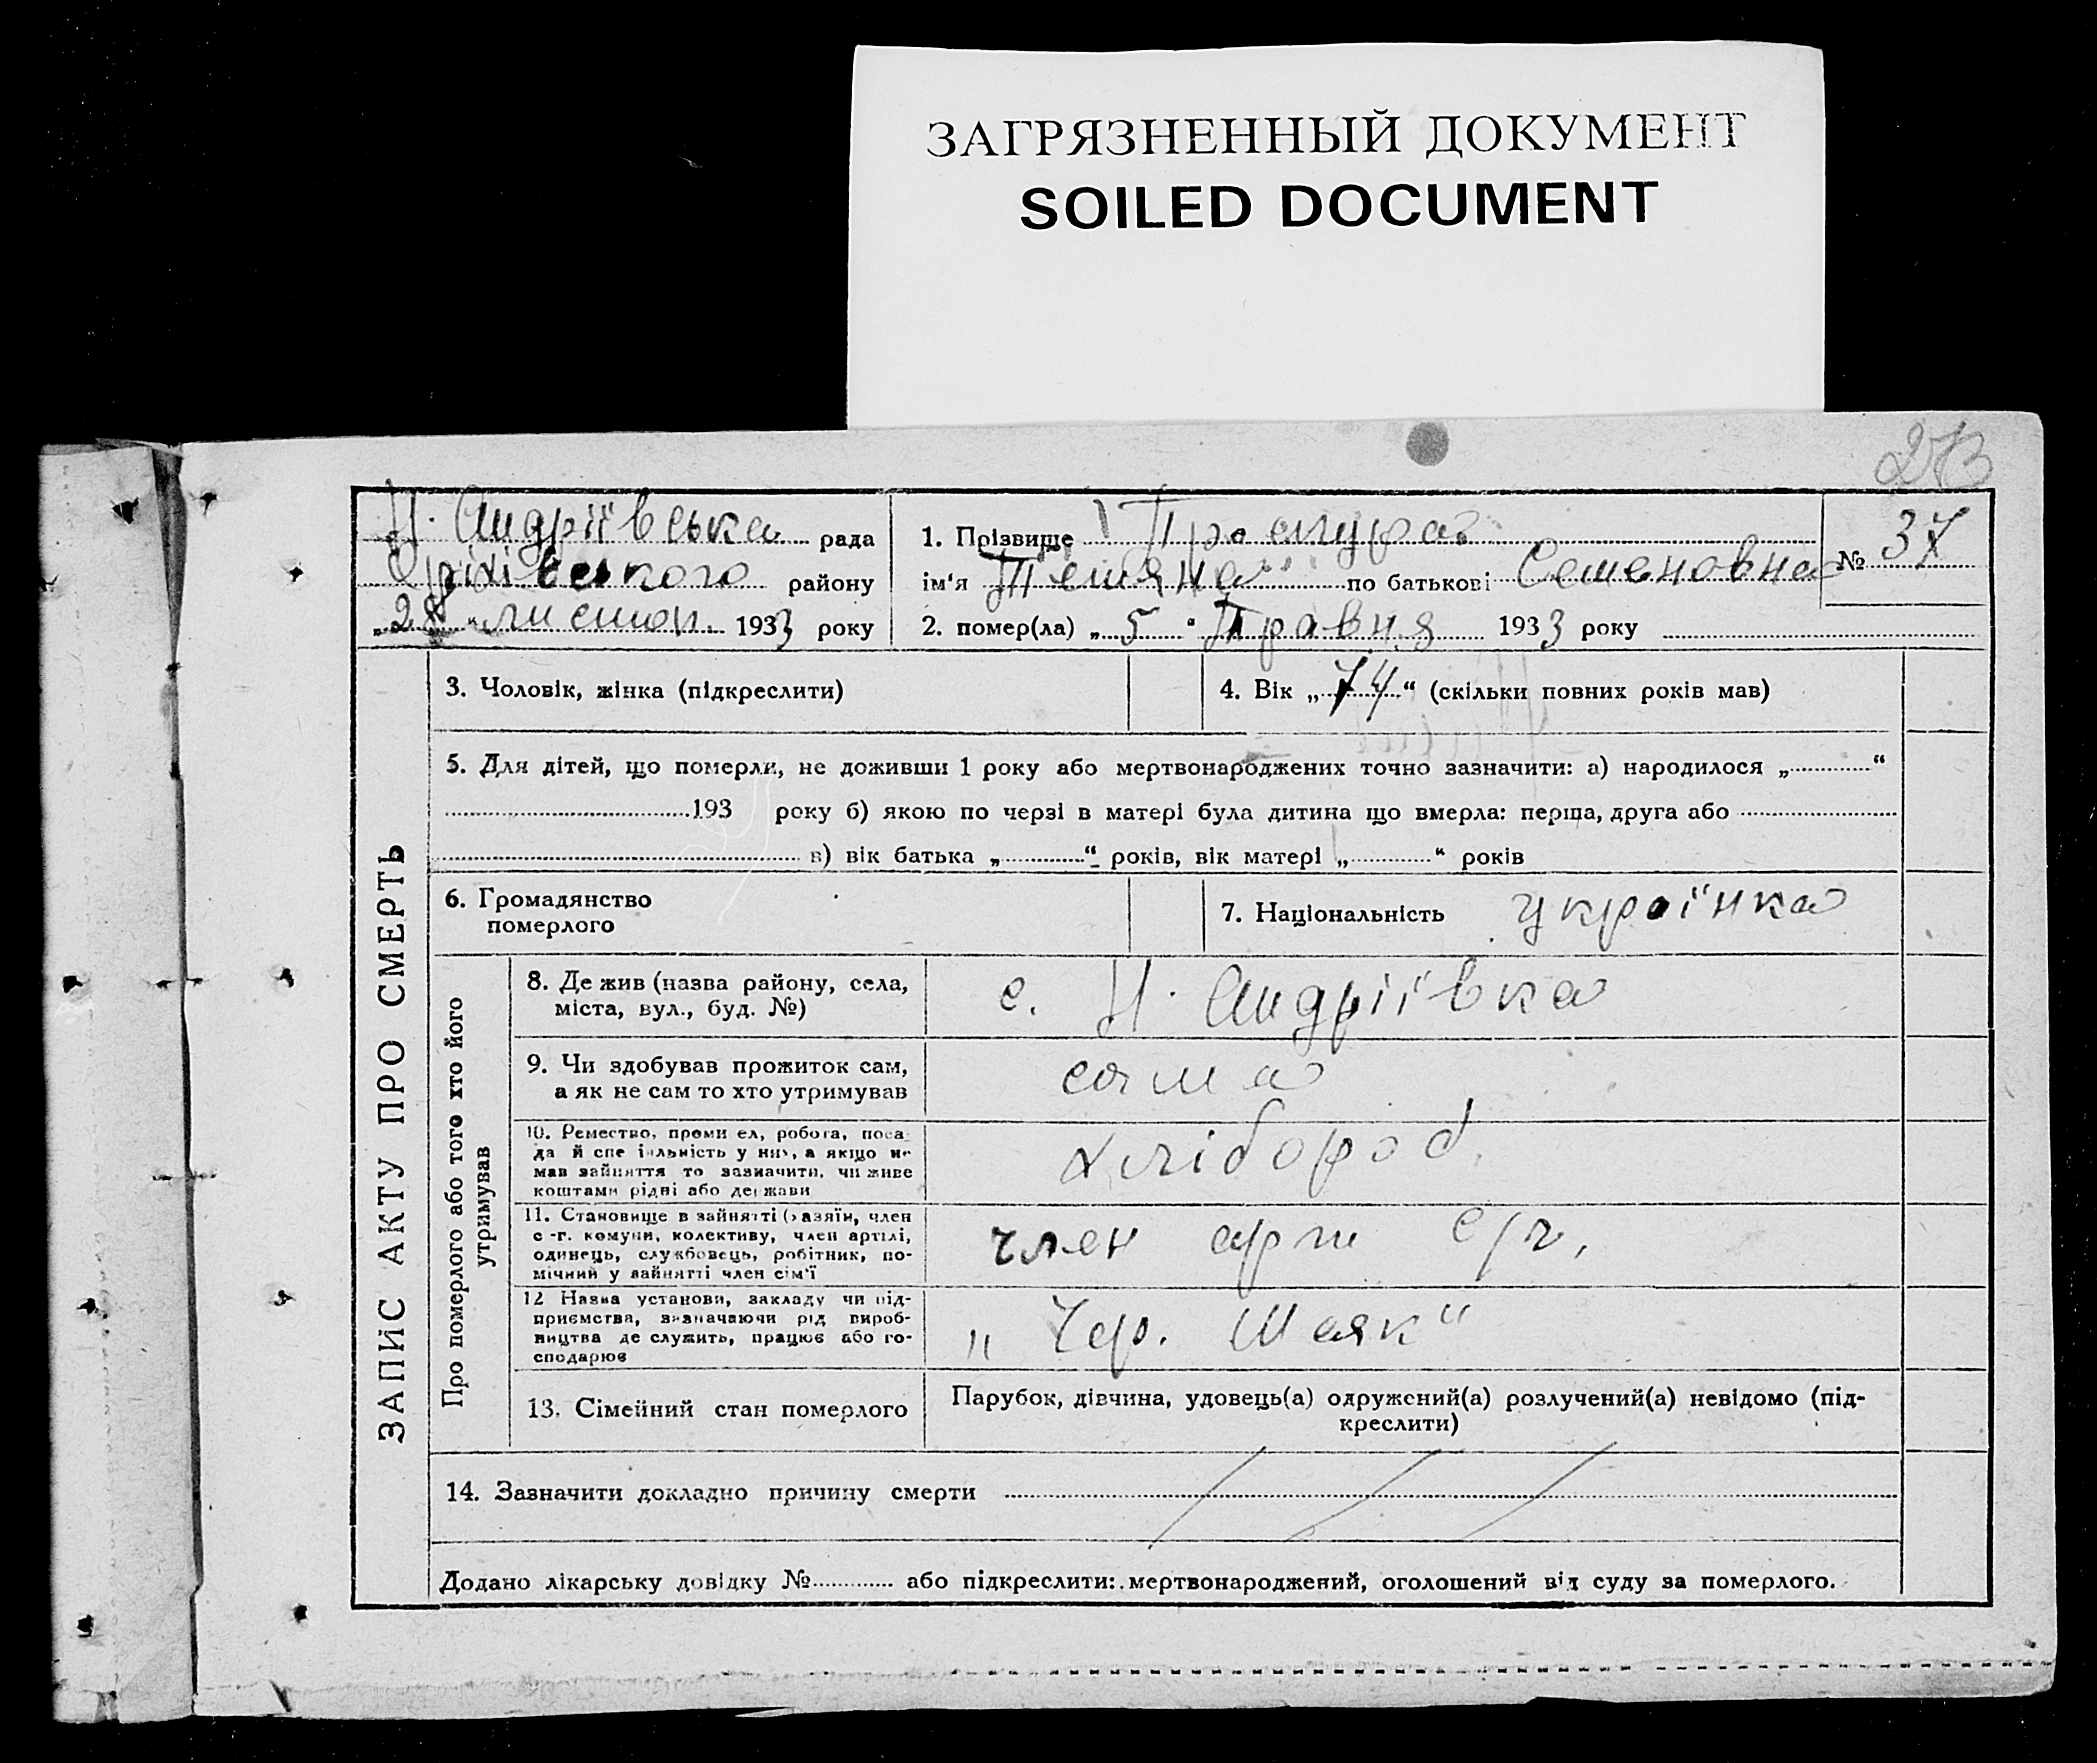 ЗАГРЯЗНЕННЫЙ ДОКУМЕНТ
SOILED DOCUMENT
273
Н. Андріївська рада
Оріхівського району
„28“ листоп. 1933 року
1. Прізвище Проскура
ім'я Тетяна по батькові Семеновна
№ 37
2. помер(ла) „5“ Травня 1933 року
ЗАПИС АКТУ ПРО СМЕРТЬ
3. Чоловік, жінка (підкреслити)
4. Вік „74“ (скільки повних років мав)
5. Для дітей, що померли, не доживши 1 року або мертвонароджених точно зазначити: а) народилося „ “
193 року б) якою по черзі в матері була дитина що вмерла: перша, друга або
в) вік батька „ “ років, вік матері „ “ років
6. Громадянство
померлого
7. Національність українка
Про померлого або того хто його
утримував
8. Де жив (назва району, села,
міста, вул., буд. №)
с. Н. Андріївка
9. Чи здобував прожиток сам,
а як не сам то хто утримував
сама
10. Ремество, промисел, робота, поса-
да й спеціяльність у них, а якщо не
мав зайняття то зазначити, чи живе
коштами рідні або держави
хлібороб
11. Становище в зайнятті (хазяїн, член
с.-г. комуни, колективу, член артілі,
одинець, службовець, робітник, по-
мічний у зайнятті член сім'ї
член арт с/г,
12 Назва установи, закладу чи під-
приємства, зазначаючи рід вироб-
ництва де служить, працює або го-
сподарює
„Чер. Маяк"
13. Сімейний стан померлого
Парубок, дівчина, удовець(а) одружений(а) розлучений(а) невідомо (під-
креслити)
14. Зазначити докладно причину смерти
Додано лікарську довідку № або підкреслити: мертвонароджений, оголошений від суду за померлого.